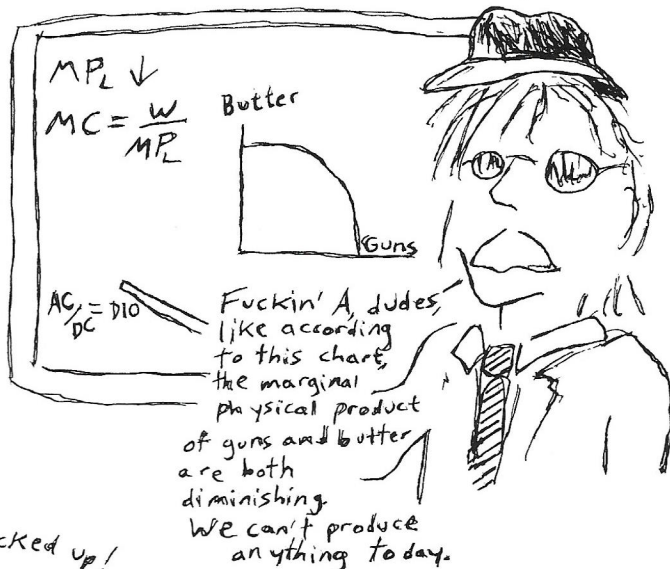 MPL ↓
MC = W/MPL
Butter
Guns
AC/DC = DIO
Fuckin' A, dudes,
like according
to this chart,
the marginal
physical product
of guns and butter
are both
diminishing.
We can't produce
anything today.
cked up!